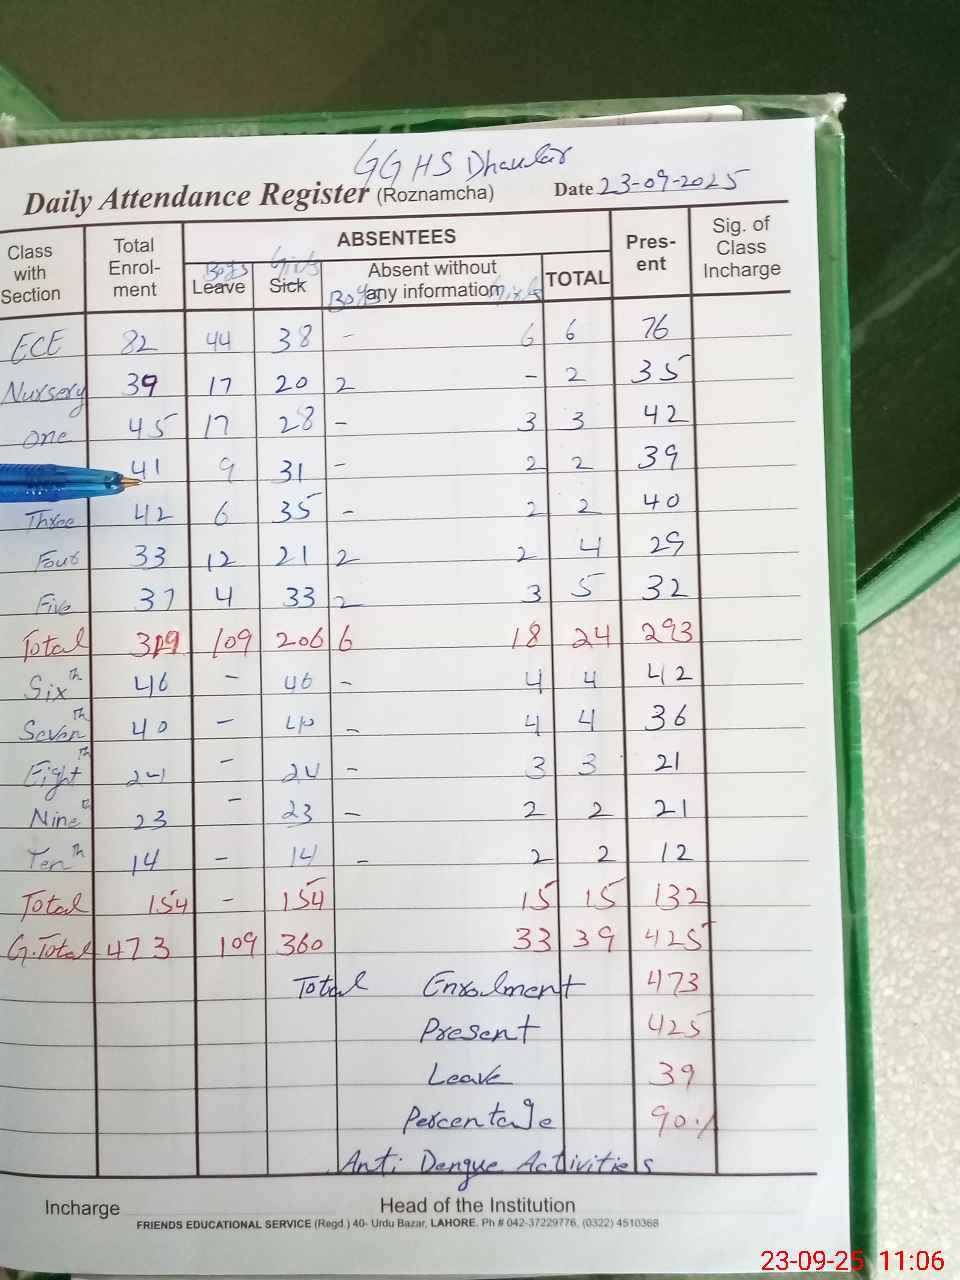 GGHS Dhaular
Daily Attendance Register (Roznamcha) Date 23-09-2025
Class with Section Total Enrol-ment ABSENTEES Pres-ent Sig. of Class Incharge
Boys Leave Girls Sick Boys Absent without any information Girls TOTAL
ECE 82 44 38 - 6 6 76
Nursery 39 17 20 2 - 2 35
One 45 17 28 - 3 3 42
41 9 31 - 2 2 39
Three 42 6 35 - 2 2 40
Four 33 12 21 2 2 4 29
Five 37 4 33 2 3 5 32
Total 319 109 206 6 18 24 293
Six th 46 - 46 - 4 4 42
Seven th 40 - 40 - 4 4 36
Eight th 24 - 24 - 3 3 21
Nine th 23 - 23 - 2 2 21
Ten th 14 - 14 - 2 2 12
Total 154 - 154 15 15 132
G.Total 473 109 360 33 39 425
Total Enrolment 473
Present 425
Leave 39
Percentage 90%
Anti Dengue Activities
Incharge Head of the Institution
FRIENDS EDUCATIONAL SERVICE (Regd.) 40- Urdu Bazar, LAHORE. Ph # 042-37229776, (0322) 4510368
23-09-25 11:06